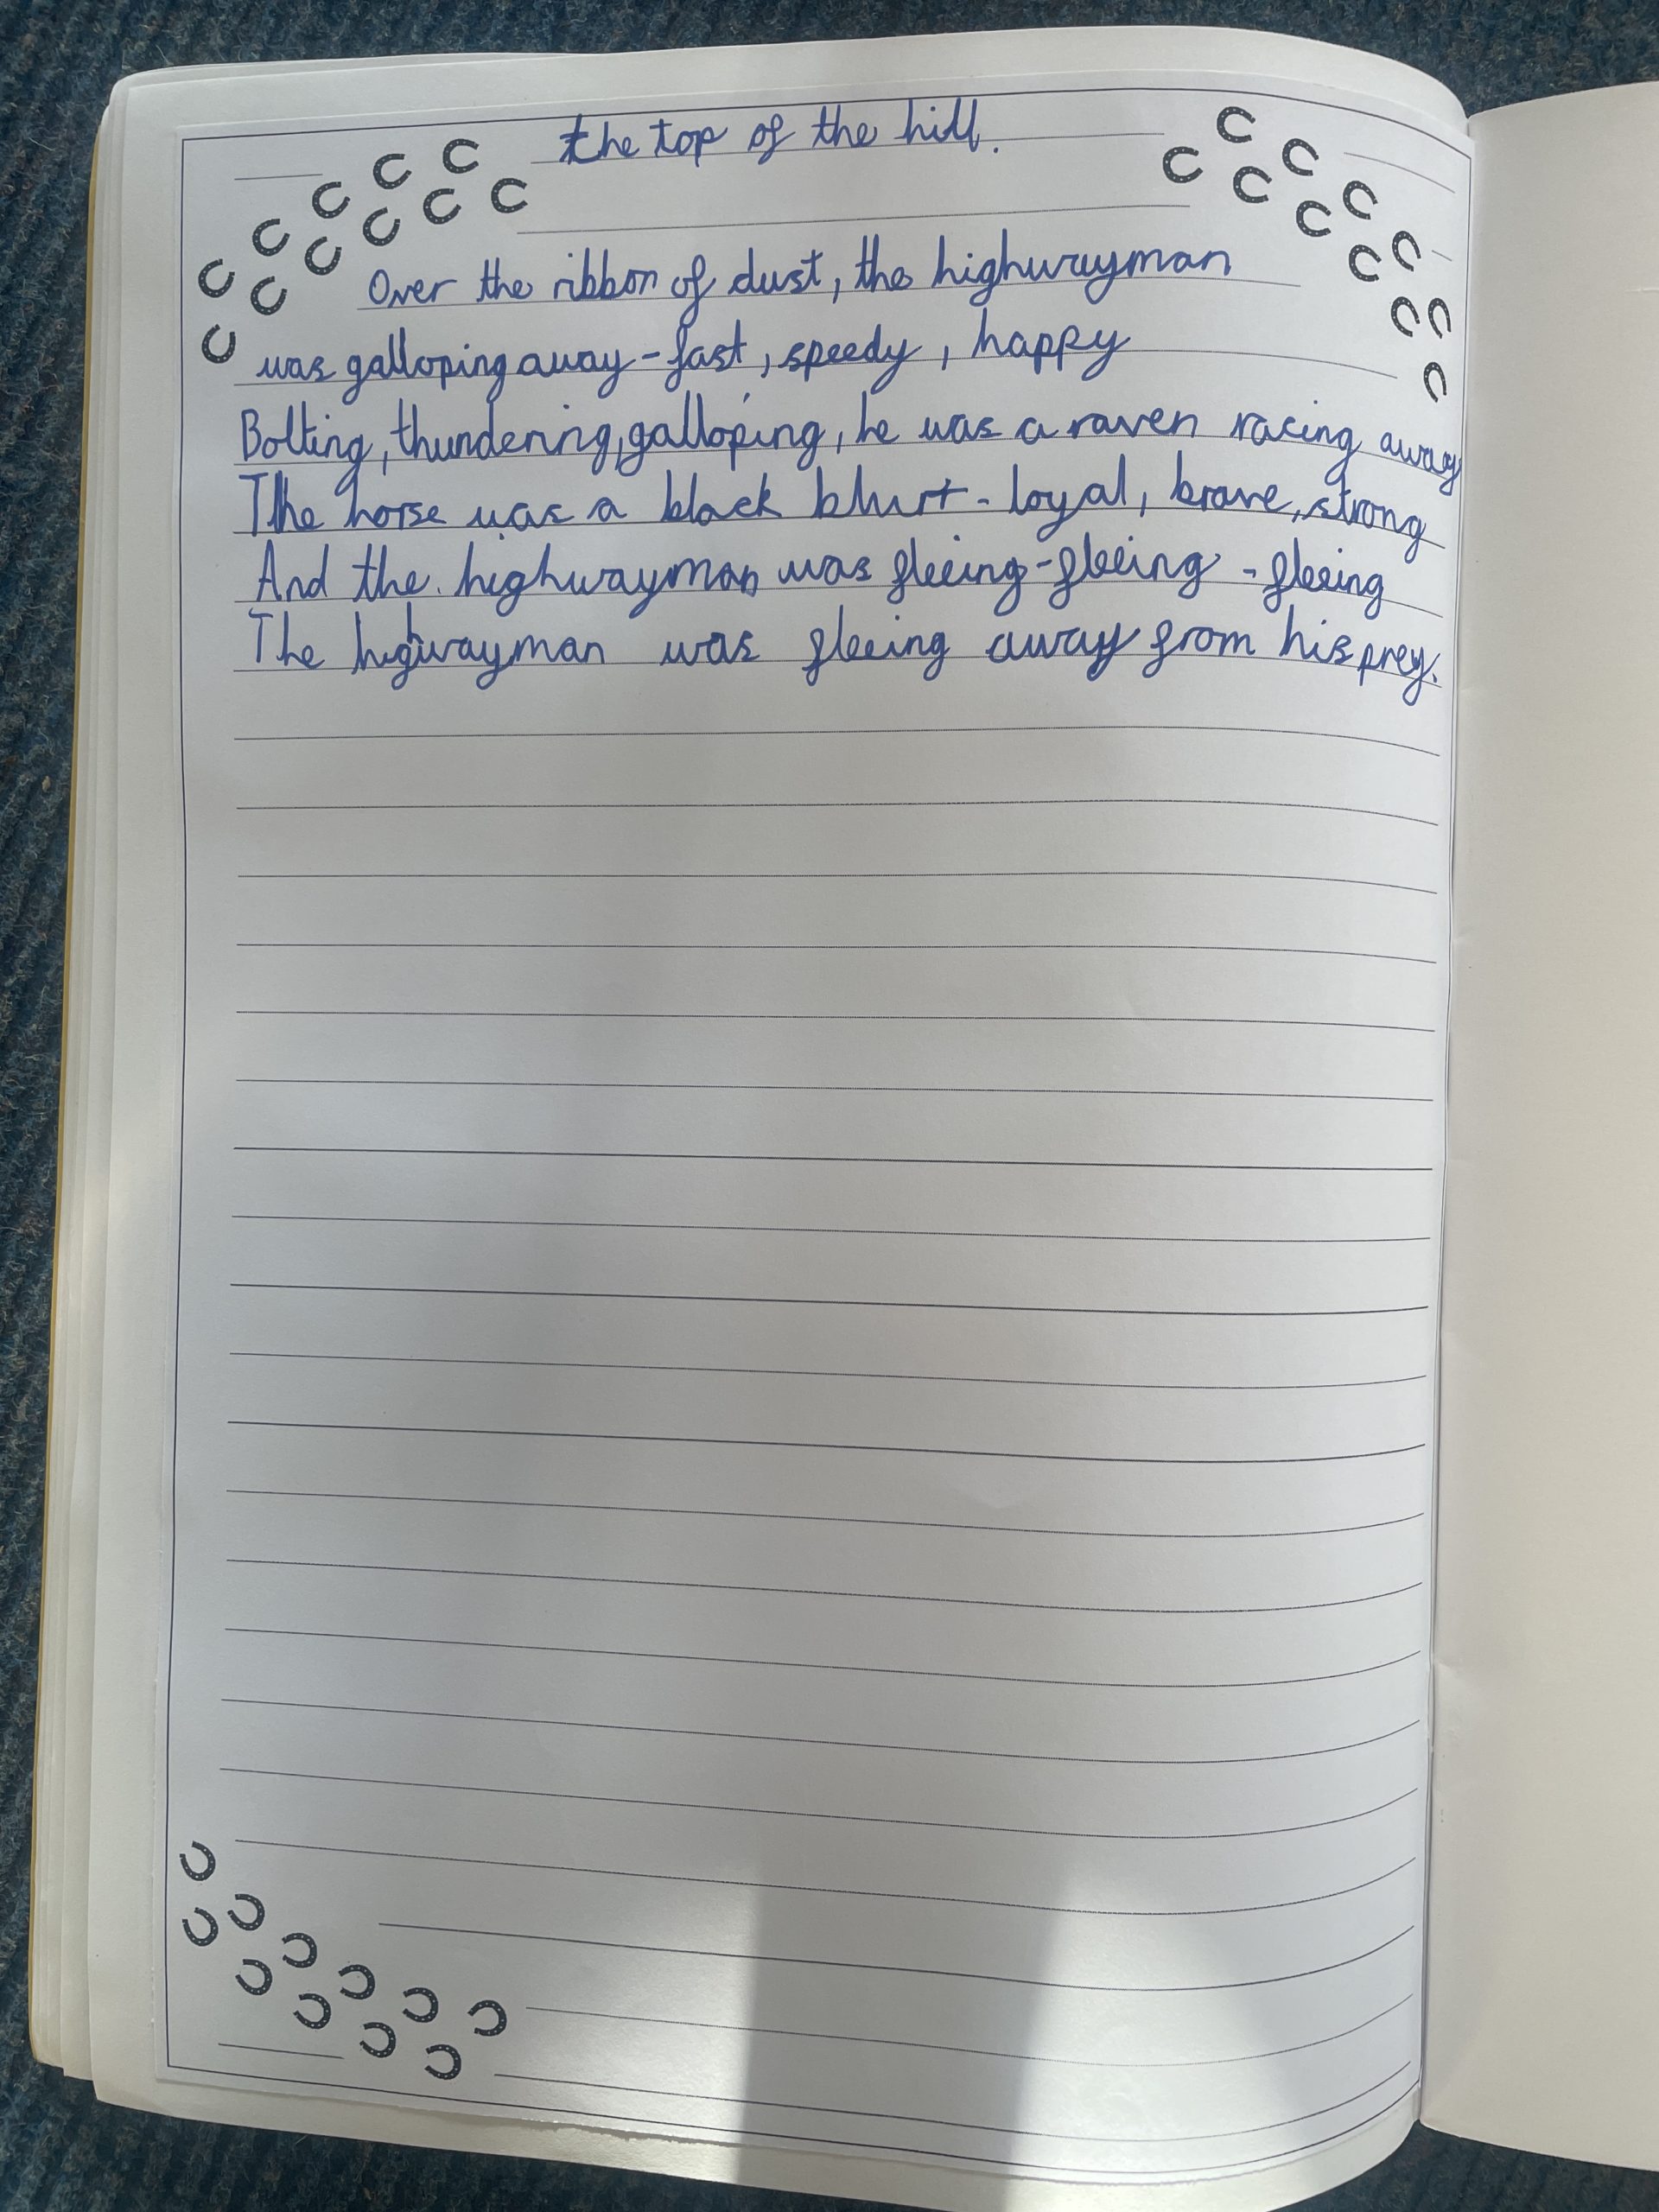 the top of the hill.
Over the ribbon of dust, the highwayman
was galloping away - fast, speedy, happy
Bolting, thundering, galloping, he was a raven racing away
The horse was a black blurt - loyal, brave, strong
And the highwayman was fleeing - fleeing - fleeing
The highwayman was fleeing away from his prey.